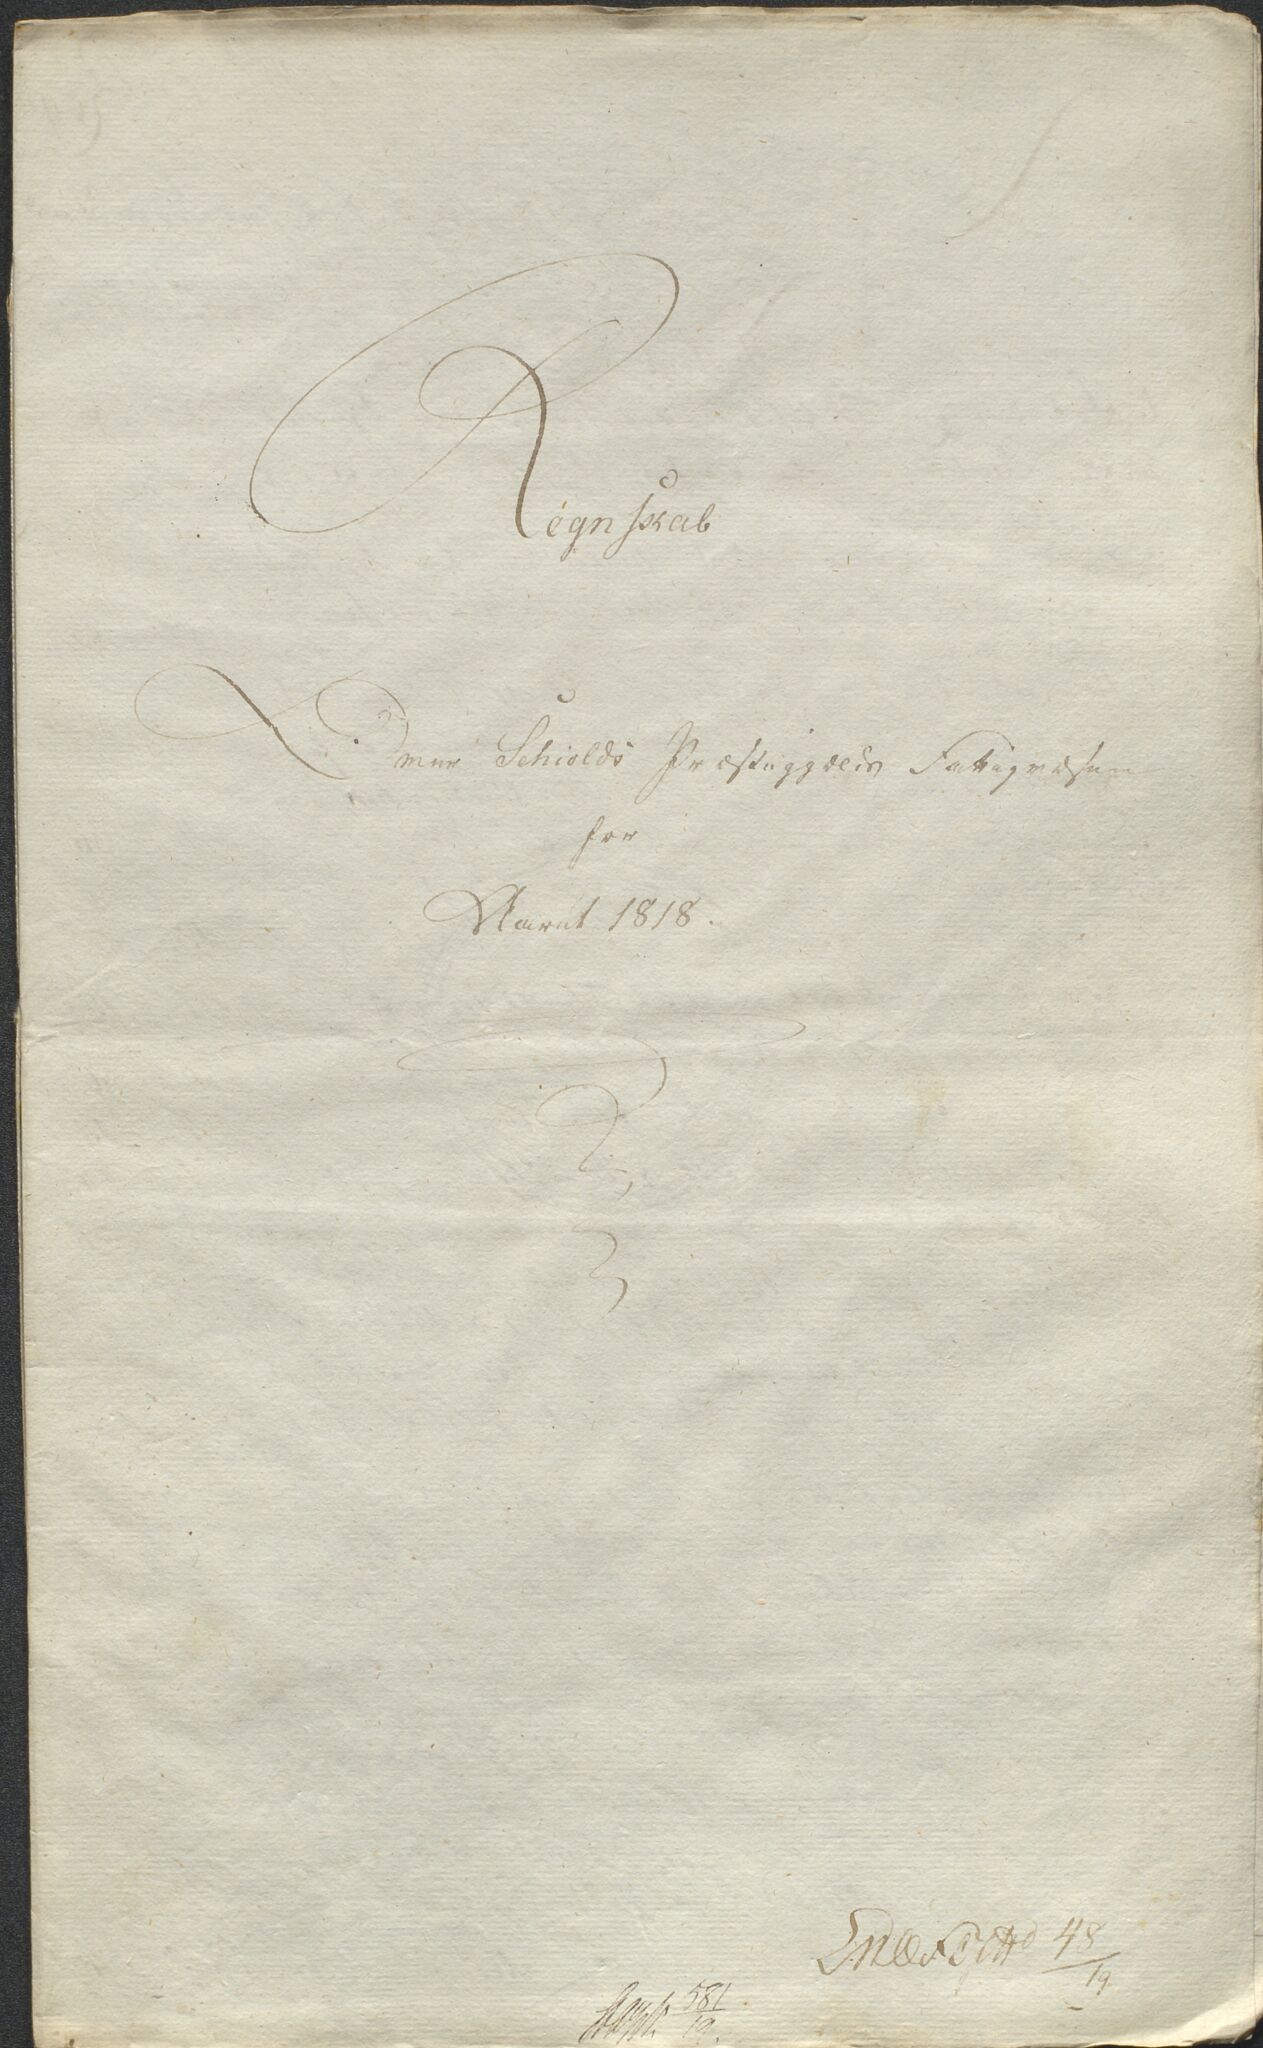 Regnskab
Schiolds Præstegjelds Fattigvæsen
for
Aaret 1818.
48/19
581/19.